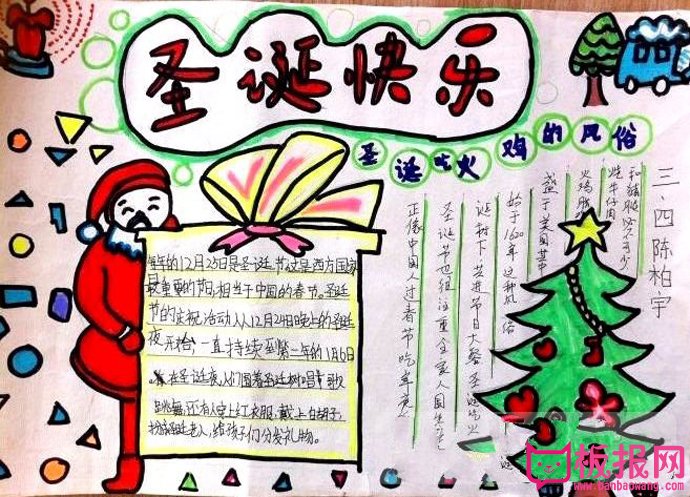 圣诞快乐
圣诞吃火鸡的风俗
三.四陈柏宇
每年的12月25日是圣诞节,这是西方国家
最重要的节日,相当于中国的春节。圣诞
节的庆祝活动从12月24日晚上的圣诞
夜开始,一直持续到第二年的1月6日
。在圣诞夜,人们围着圣诞树唱歌
跳舞,还有人穿上红衣服,戴上白胡子,
扮演圣诞老人,给孩子们分发礼物。
正像中国人过春节吃年
圣诞节也很注重全家人围坐
诞树下,共进节日大餐。圣诞吃火
始于1620年。这种风俗
盛于美国。其中
火鸡
烧牛仔肉
和猪腿必不可少
板报网
www.banbaowang.com